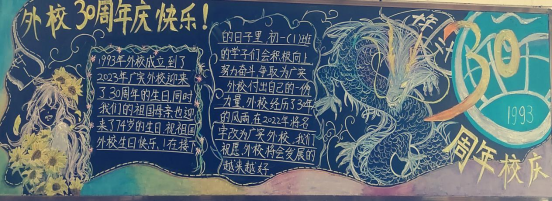 外校30周年庆快乐！
1993年外校成立到了
2023年广实外校迎来
了30周年的生日，同时
我们的祖国母亲也迎
来了74岁的生日，祝祖国
外校生日快乐！在接下
的日子里，初一（1）班
的学子们会积极向上
努力奋斗争取为广实
外校付出自己的一份
力量，外校经历了30年
的风雨，在2022年将名
字改为广实外校，我们
祝愿外校将会发展的
越来越好
30
1993
周年校庆